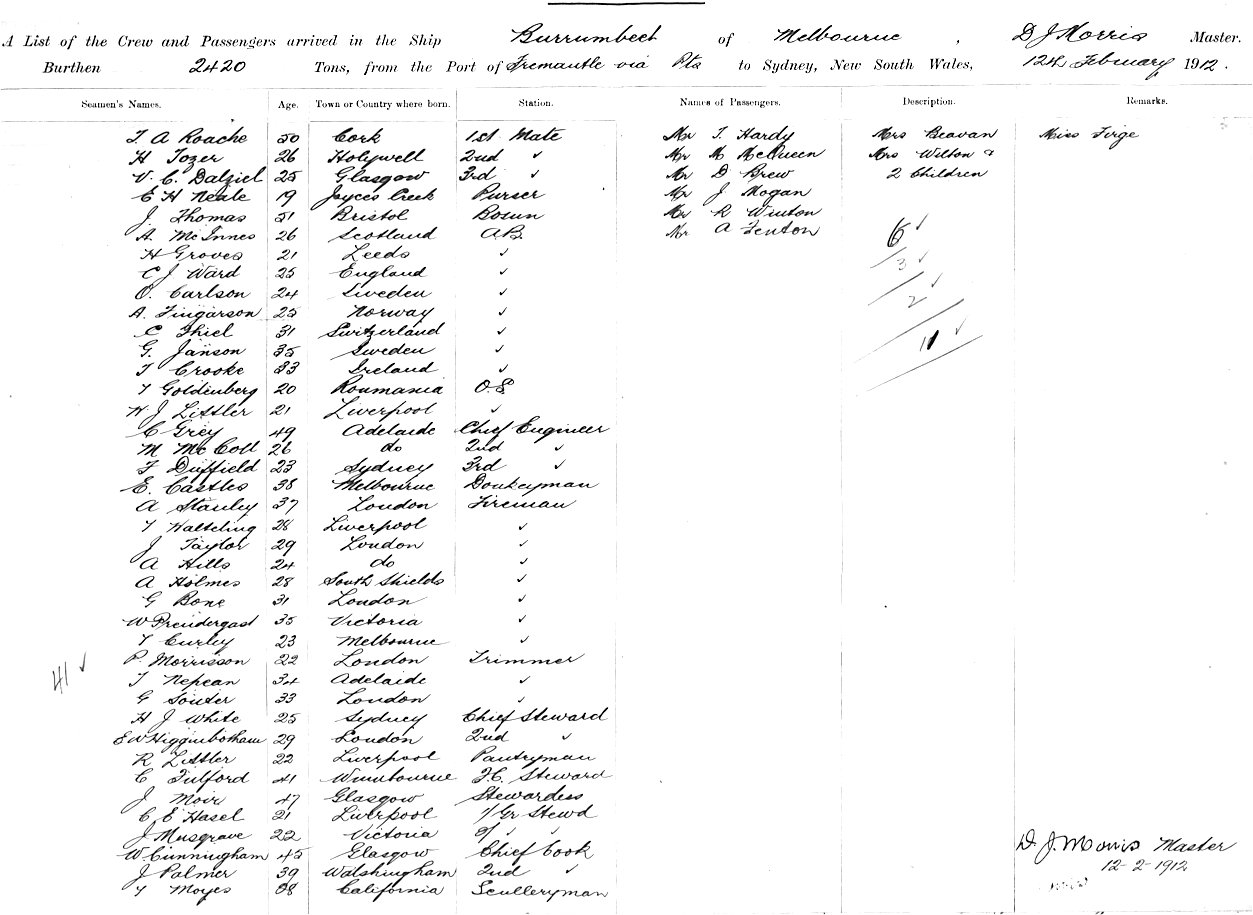 A List of the Crew and Passengers arrived in the Ship Burrumbeet of Melbourne, D J Morris Master.
Burthen 2420 Tons, from the Port of Fremantle via Pts to Sydney, New South Wales, 12th February 1912.
Seamen's Names. Age. Town or Country where born. Station. Names of Passengers. Description. Remarks.
T. A Roache 50 Cork 1st Mate Mr T. Hardy Mrs Beavan Miss Tirge
H Tozer 26 Holywell 2nd " Mr M McQueen Mrs Wilton &
V. C. Dalziel 25 Glasgow 3rd " Mr D Brew 2 Children
E H Neale 19 Joyces Creek Purser Mr J Mogan
J. Thomas 51 Bristol Bosun Mr R Winton
A. McInnes 26 Scotland A.B. Mr A Fenton 6 ✓
H Groves 21 Leeds "
C J Ward 25 England " 3 ✓
O. Carlson 24 Sweden "
A. Fingarson 25 Norway " 2 ✓
C Thiel 31 Switzerland "
G. Janson 35 Sweden " 11 ✓
T Crooke 33 Ireland "
T Goldenberg 20 Roumania O.S.
H. J Littler 21 Liverpool "
C Grey 49 Adelaide Chief Engineer
M McColl 26 do 2nd "
F Duffield 23 Sydney 3rd "
E. Castles 38 Melbourne Donkeyman
A Stanley 37 London Fireman
T 28 Liverpool "
J Taylor 29 London "
A Hills 24 do "
A Holmes 28 South Shields "
G Bone 31 London "
W Prendergast 35 Victoria "
T Curley 23 Melbourne "
41 ✓ P. Morrisson 22 London Trimmer
T Nepean 34 Adelaide "
G Souter 33 London "
H J White 25 Sydney Chief Steward
E W Higginbotham 29 London 2nd "
R Littler 22 Liverpool Pantryman
C Tulford 41 Wimbourne F.C. Steward
J Moir 47 Glasgow Stewardess
C E Hasel 21 Liverpool F/Gr Stewd
J Musgrave 22 Victoria " "
W Cunningham 45 Glasgow Chief Cook D. J. Morris Master
J Palmer 39 Walshingham 2nd " 12-2-1912
T Moyes 38 California Sculleryman